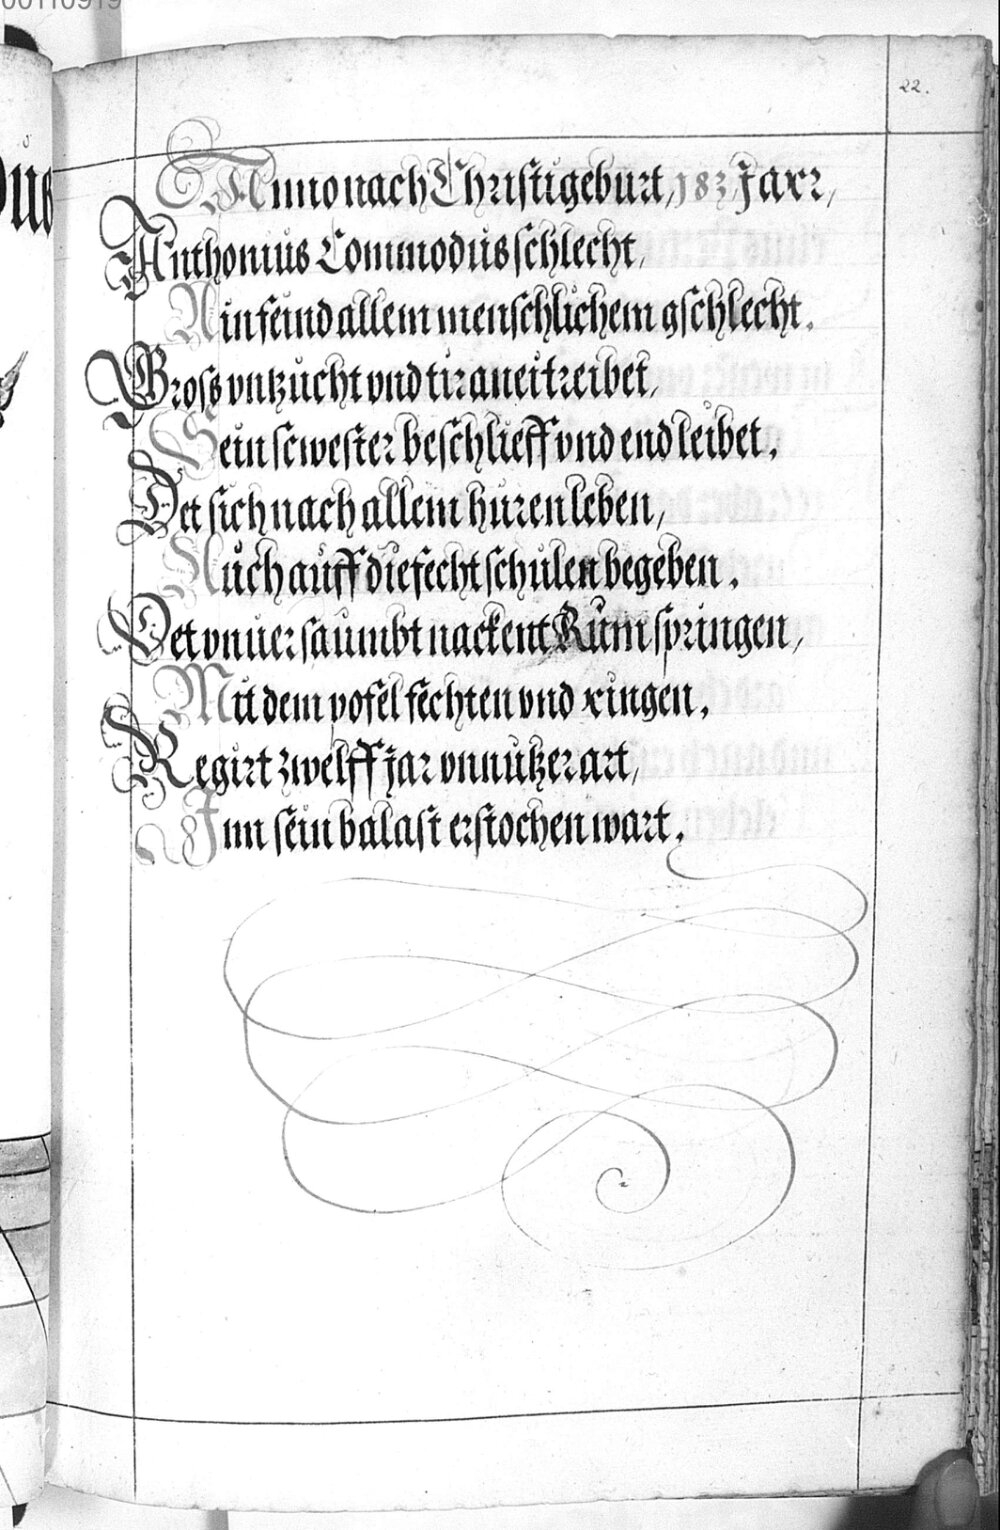 00110919
22.
Anno nach Christi geburt, 183 Jarr,
Anthonius Commodus schlecht,
Ain feind allem menschlichem gschlecht.
Gross vntzucht vnd tiraneit reibet,
Sein scwester beschlieff vnd endleibet.
Det sich nach allem huren leben,
Auch auff die fechtschulen begeben.
Det vnuersaumbt nackent Rum springen,
Mit dem pofel fechten vnd ringen.
Regirt zwelff jar vnnützer art,
Inn sein balast erstochen wart.